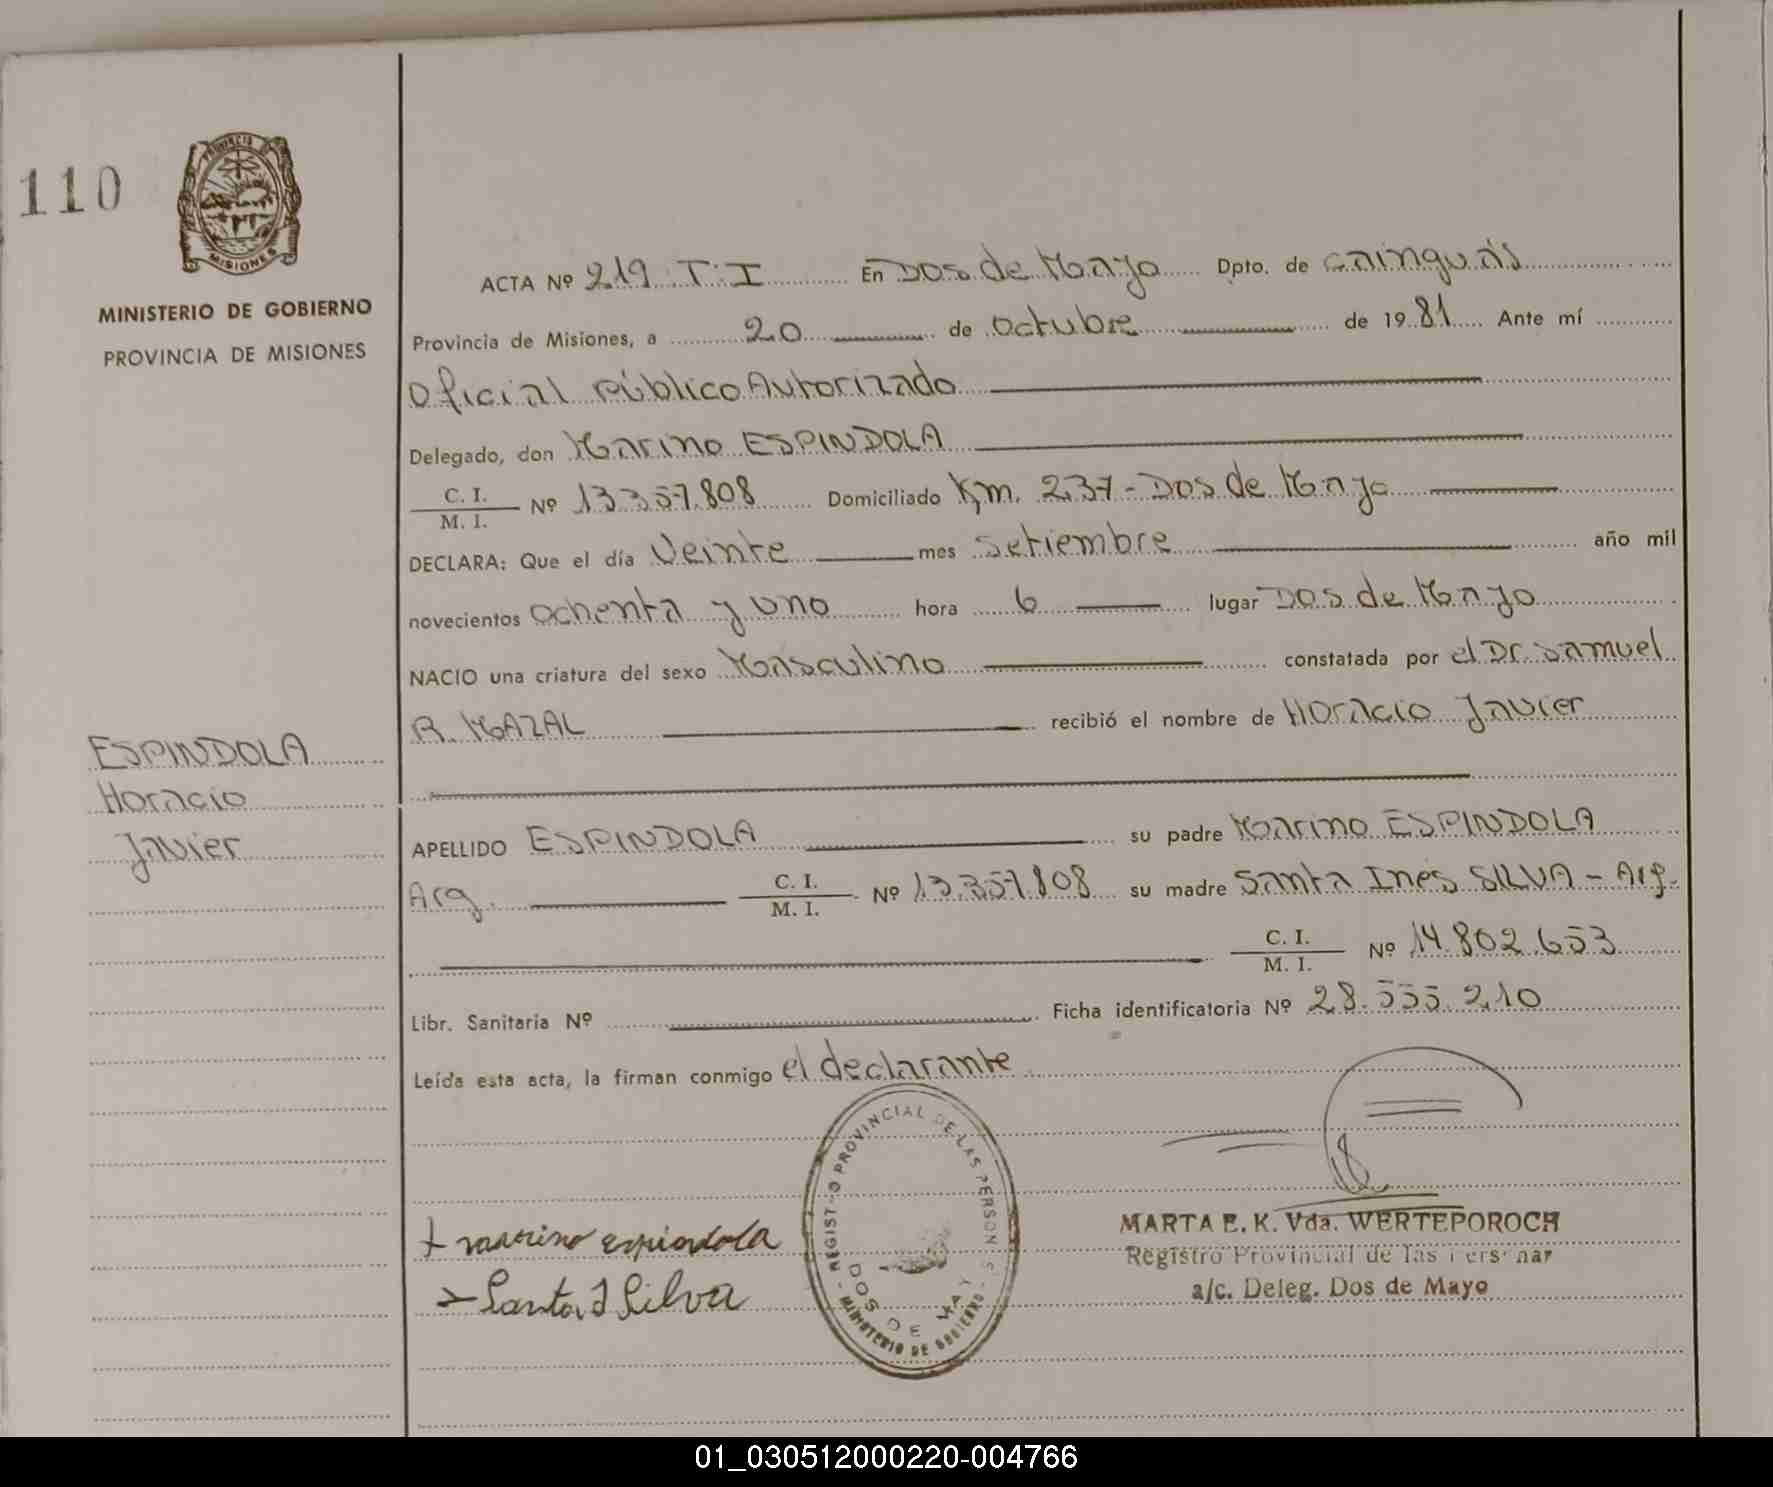 110
PROVINCIA DE
MISIONES
MINISTERIO DE GOBIERNO
PROVINCIA DE MISIONES
ESPINDOLA
Horacio
Javier
ACTA Nº 219 T: I En Dos de Mayo Dpto. de Cainguás
Provincia de Misiones, a 20 de octubre de 1981 Ante mí
Oficial Público Autorizado
Delegado, don Marino ESPINDOLA
C. I.
M. I. Nº 13.357.808 Domiciliado Km. 237 - Dos de Mayo
DECLARA: Que el día Veinte mes Setiembre año mil
novecientos ochenta y uno hora 6 lugar Dos de Mayo
NACIO una criatura del sexo Masculino constatada por el Dr. Samuel
R. MAZAL recibió el nombre de Horacio Javier
APELLIDO ESPINDOLA su padre Marino ESPINDOLA
Arg. C. I.
M. I. Nº 13.357.808 su madre Santa Inés SILVA - Arg.
C. I.
M. I. Nº 14.802.653
Libr. Sanitaria Nº Ficha identificatoria Nº 28.555.210
Leída esta acta, la firman conmigo el declarante
REGISTRO PROVINCIAL DE LAS PERSONAS
DOS DE MAYO
MINISTERIO DE GOBIERNO
+ marino espindola
Santa I Silva
MARTA E. K. Vda. WERTEPOROCH
Registro Provincial de las Personas
a/c. Deleg. Dos de Mayo
01_030512000220-004766